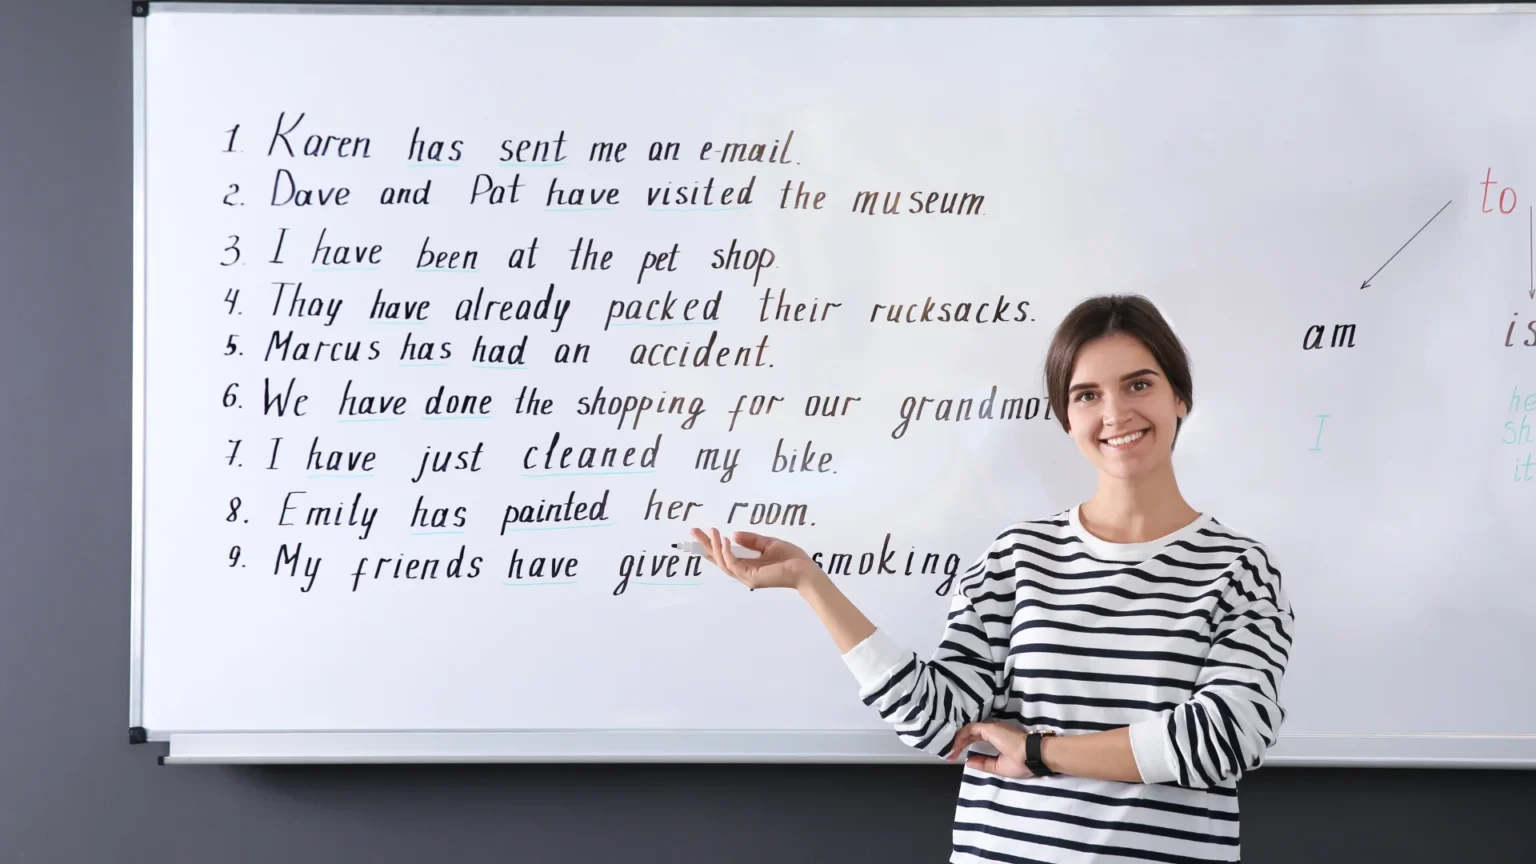 1. Karen has sent me an e-mail.
2. Dave and Pat have visited the museum.
3. I have been at the pet shop.
4. Thay have already packed their rucksacks.
5. Marcus has had an accident.
6. We have done the shopping for our grandmot
7. I have just cleaned my bike.
8. Emily has painted her room.
9. My friends have given smoking
to
am is
I he
sh
it